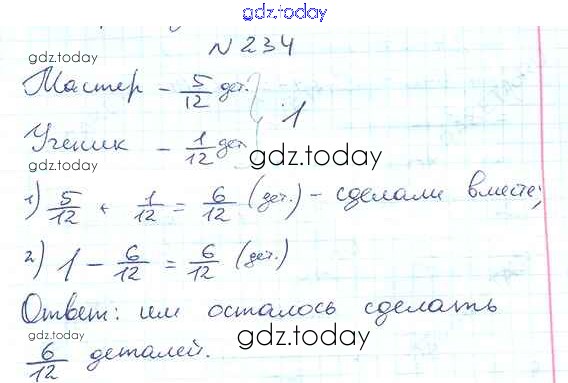 gdz.today
N 234
gdz.today
gdz.today
Мастер - 5/12 дет.
1
Ученик - 1/12 дет.
gdz.today
gdz.today
1) 5/12 + 1/12 = 6/12 (дет.) - сделали вместе;
2) 1 - 6/12 = 6/12 (дет.)
Ответ: им осталось сделать
gdz.today
gdz.today
6/12 деталей.